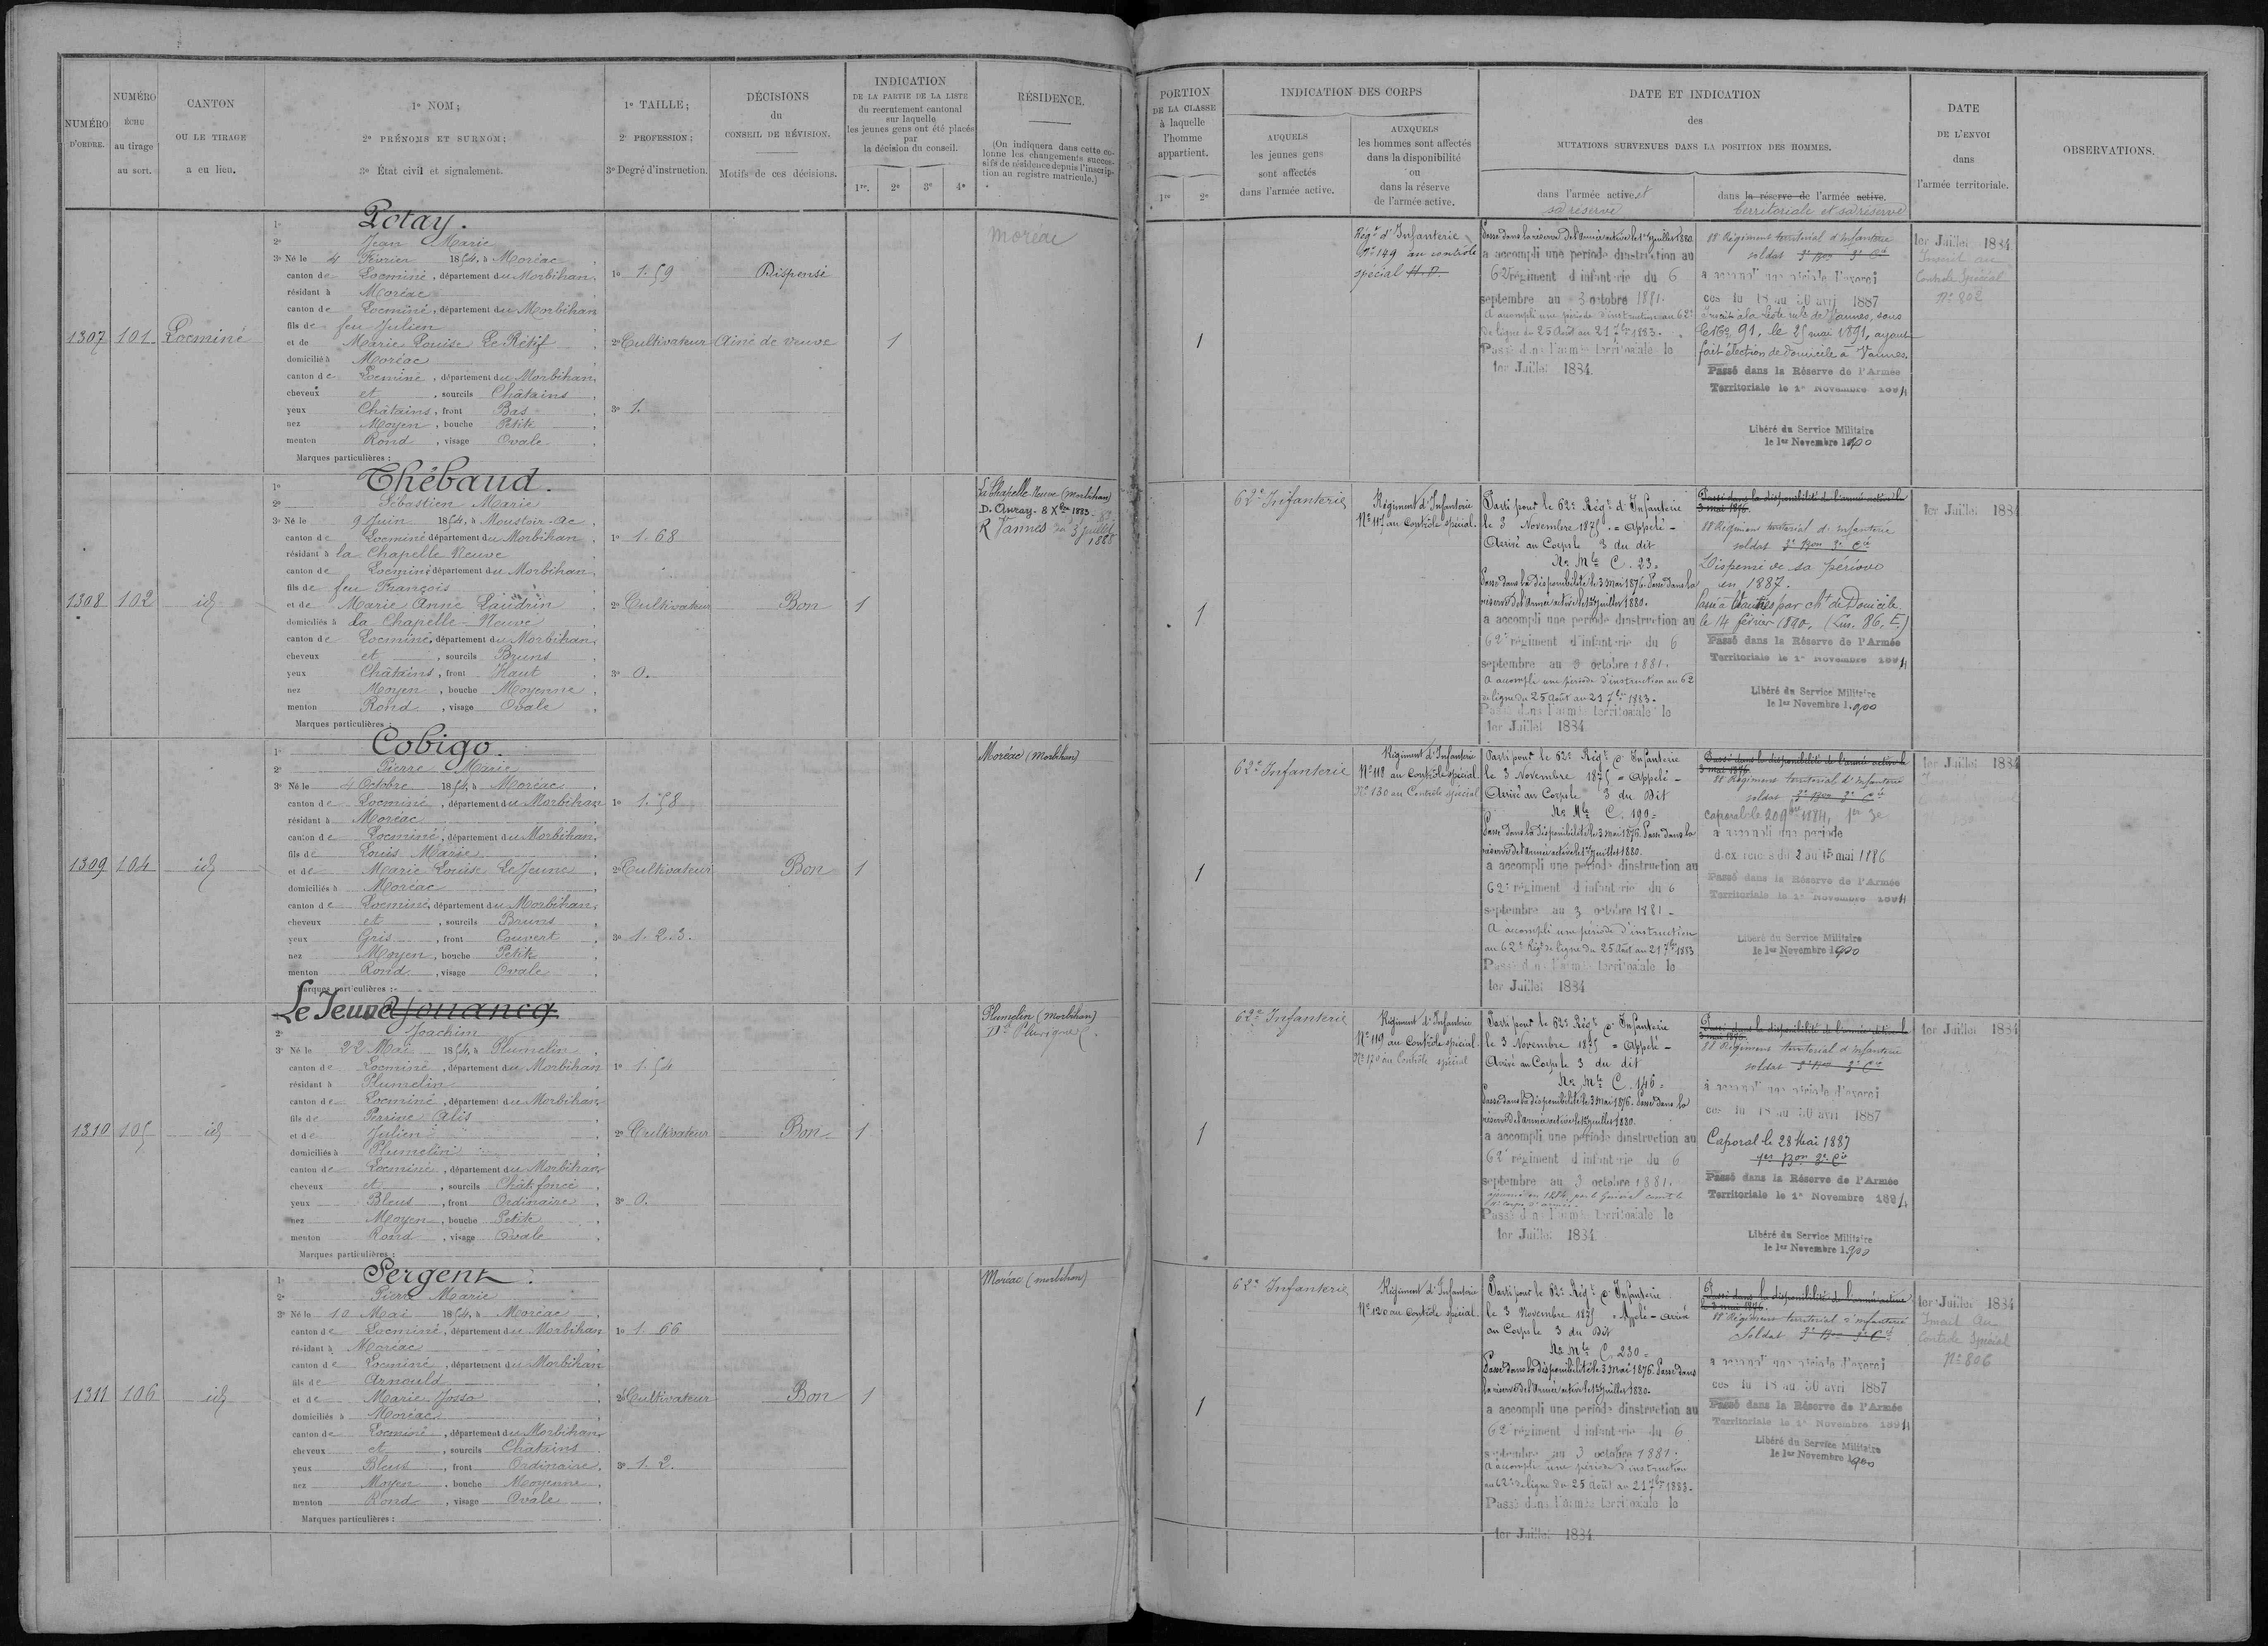 NUMÉRO
D'ORDRE.
NUMÉRO
ÉCHU
au tirage
au sort.
CANTON
OU LE TIRAGE
a eu lieu.
1º NOM;
2º PRÉNOMS ET SURNOM;
3º État civil et signalement.
1º TAILLE;
2º PROFESSION;
3º Degré d'instruction.
DÉCISIONS
du
CONSEIL DE RÉVISION.
Motifs de ces décisions.
INDICATION
DE LA PARTIE DE LA LISTE
du recrutement cantonal
sur laquelle
les jeunes gens ont été placés
par
la décision du conseil.
1re. 2e 3e 4e
RÉSIDENCE.
(On indiquera dans cette co-
lonne les changements succes-
sifs de résidence depuis l'inscrip-
tion au registre matricule.)
PORTION
DE LA CLASSE
à laquelle
l'homme
appartient.
1re 2e
INDICATION DES CORPS
AUQUELS
les jeunes gens
sont affectés
dans l'armée active.
AUXQUELS
les hommes sont affectés
dans la disponibilité
ou
dans la réserve
de l'armée active.
DATE ET INDICATION
des
MUTATIONS SURVENUES DANS LA POSITION DES HOMMES.
dans l'armée active et
sa réserve
dans la réserve de l'armée active.
territoriale et sa réserve
DATE
DE L'ENVOI
dans
l'armée territoriale.
OBSERVATIONS.
1307 101 Locminé
1º Potay.
2º Jean Marie
3º Né le 4 Février 1854, à Moréac
canton de Locminé, département du Morbihan
résidant à Moréac
canton de Locminé, département du Morbihan
fils de feu Julien
et de Marie Louise Le Rétif
domicilié à Moréac
canton de Locminé, département du Morbihan,
cheveux et, sourcils Châtains
yeux Châtains, front Bas
nez Moyen, bouche Petite
menton Rond, visage Ovale
Marques particulières :
1º 1.59
2º Cultivateur
3º 1.
Dispensé
Aîné de veuve
1
Moréac
1
Régt d'Infanterie
Nº 149 au contrôle
spécial H.D.
Passé dans la réserve de l'armée active le 1er juillet 1880.
a accompli une période d'instruction au
62e régiment d'infanterie du 6
septembre au 3 octobre 1881.
a accompli une période d'instruction au 62e
de ligne du 25 Août au 21 7bre 1883.
Passé dans l'armée territoriale le
1er Juillet 1884.
88 Régiment territorial d'Infanterie
soldat 3e Bon 3e Cie
a accompli une période d'exerci
ces du 18 au 30 avri 1887
Inscrit à la liste rale de Vannes, sous
le Nº 91, le 25 mai 1891, ayant
fait élection de domicile à Vannes.
Passé dans la Réserve de l'Armée
Territoriale le 1er Novembre 1894
Libéré du Service Militaire
le 1er Novembre 1900
1er Juillet 1884
Immat. au
Controle Spécial
Nº 802
1308 102 id
1º Thébaud.
2º Sébastien Marie
3º Né le 9 Juin 1854, à Moustoir-Ac
canton de Locminé département du Morbihan
résidant à la Chapelle Neuve
canton de Locminé département du Morbihan,
fils de feu François
et de Marie Anne Laudrin
domiciliés à la Chapelle-Neuve
canton de Locminé, département du Morbihan
cheveux et, sourcils Bruns
yeux Châtains, front Haut
nez Moyen, bouche Moyenne
menton Rond, visage Ovale
Marques particulières :
1º 1.68
2º Cultivateur
3º 0.
Bon
1
La Chapelle-Neuve (Morbihan)
D. Auray. 8 Xbre 1883
R Vannes 3 juillet
1888
1
62e Infanterie
Régiment d'Infanterie
Nº 117 au Contrôle spécial.
Parti pour le 62e Régt d'Infanterie
le 3 Novembre 1875. = Appelé -
Arrivé au Corps le 3 du dit
No Mle C. 23.
Passé dans la disponibilité le 3 mai 1876. Passé dans la
réserve de l'armée active le 1er juillet 1880.
a accompli une période d'instruction au
62e régiment d'infanterie du 6
septembre au 3 octobre 1881.
a accompli une période d'instruction au 62
de ligne du 25 Août au 21 7bre 1883.
Passé dans l'armée territoriale le
1er Juillet 1884
Passé dans la disponibilité de l'armée active le
3 mai 1876.
88 Régiment territorial d'infanterie
soldat 3e Bon 3e Cie
Dispensé de sa période
en 1887.
Passé à Nantes par cht de Domicile
le 14 février 1890, (Lis. 86. E.)
Passé dans la Réserve de l'Armée
Territoriale le 1er Novembre 1894
Libéré du Service Militaire
le 1er Novembre 1900
1er Juillet 1884
1309 104 id
1º Cobigo.
2º Pierre Marie
3º Né le 4 Octobre 1854, à Moréac
canton de Locminé, département du Morbihan
résidant à Moréac
canton de Locminé, département du Morbihan.
fils de Louis Marie
et de Marie Louise Le Jeune
domiciliés à Moréac
canton de Locminé, département du Morbihan,
cheveux et, sourcils Bruns
yeux Gris, front Couvert
nez Moyen, bouche Petite
menton Rond, visage Ovale
Marques particulières :
1º 1.58
2º Cultivateur
3º 1.2.3.
Bon
1
Moréac (Morbihan)
1
62e Infanterie
Régiment d'Infanterie
Nº 118 au Contrôle spécial
Nº 130 au Contrôle spécial
Parti pour le 62e Régt d'Infanterie
le 3 Novembre 1875 = Appelé -
Arrivé au Corps le 3 du Dit
No Mle C. 190 =
Passé dans la disponibilité le 3 mai 1876. Passé dans la
réserve de l'armée active le 1er juillet 1880.
a accompli une période d'instruction au
62e régiment d'infanterie du 6
septembre au 3 octobre 1881 -
a accompli une période d'instruction
au 62e Régt de ligne du 25 Août au 21 7bre 1883
Passé dans l'armée territoriale le
1er Juillet 1884
Passé dans la disponibilité de l'armée active le
3 mai 1876.
88 Régiment territorial d'Infanterie
soldat 3e Bon 3e Cie
Caporal le 20 9bre 1884, 1er 3e
a accompli une période
d'exercices du 2 au 15 mai 1886
Passé dans la Réserve de l'Armée
Territoriale le 1er Novembre 1894
Libéré du Service Militaire
le 1er Novembre 1900
1er Juillet 1884
1310 105 id
Le Jeune Jouancq
2º Joachim
3º Né le 22 Mai 1854, à Plumelin
canton de Locminé, département du Morbihan
résidant à Plumelin
canton de Locminé, département du Morbihan,
fils de Perrine Alis
et de Julien
domiciliés à Plumelin
canton de Locminé, département du Morbihan
cheveux et, sourcils Chât. foncé
yeux Bleus, front Ordinaire
nez Moyen, bouche Petite
menton Rond, visage Ovale
Marques particulières :
1º 1.54
2º Cultivateur
3º 0.
Bon
1
Plumelin (Morbihan)
Dº Pluvigner
1
62e Infanterie
Régiment d'Infanterie
Nº 119 au Contrôle spécial.
Nº 120 au Contrôle spécial
Parti pour le 62e Régt d'Infanterie
le 3 Novembre 1875 = Appelé -
Arrivé au Corps le 3 du dit
No Mle C. 146 =
Passé dans la disponibilité le 3 mai 1876. Passé dans la
réserve de l'armée active le 1er juillet 1880.
a accompli une période d'instruction au
62e régiment d'infanterie du 6
septembre au 3 octobre 1881.
Passé dans l'armée territoriale le
1er Juillet 1884.
Passé dans la disponibilité de l'armée active le
3 mai 1876.
88 Régiment territorial d'infanterie
soldat 3e Bon 3e Cie
a accompli une période d'exerci
ces du 18 au 30 avri 1887
Caporal le 28 Mai 1887
1er Bon 3e Cie
Passé dans la Réserve de l'Armée
Territoriale le 1er Novembre 1894
Libéré du Service Militaire
le 1er Novembre 1900
1er Juillet 1884
1311 106 id
1º Sergent.
2º Pierre Marie
3º Né le 10 Mai 1854, à Moréac
canton de Locminé, département du Morbihan
résidant à Moréac
canton de Locminé, département du Morbihan
fils de Arnould
et de Marie Josso
domiciliés à Moréac
canton de Locminé, département du Morbihan
cheveux et, sourcils Châtains
yeux Bleus, front Ordinaire.
nez Moyen, bouche Moyenne
menton Rond, visage Ovale
Marques particulières :
1º 1.66
2º Cultivateur
3º 1.2.
Bon
1
Moréac (Morbihan)
1
62e Infanterie
Régiment d'Infanterie
Nº 120 au Contrôle spécial.
Parti pour le 62e Régt d'Infanterie
le 3 Novembre 1875 = Appelé - arrivé
au Corps le 3 du Dit
No Mle C. 230 =
Passé dans la disponibilité le 3 mai 1876. Passé dans
la réserve de l'Armée active le 1er juillet 1880.
a accompli une période d'instruction au
62e régiment d'infanterie du 6
septembre au 3 octobre 1881.
a accompli une période d'instruction
au 62e de ligne du 25 Août au 21 7bre 1883.
Passé dans l'armée territoriale le
1er Juillet 1884
Passé dans la disponibilité de l'armée active
le 3 mai 1876.
88 Régiment territorial d'infanterie
Soldat 3e Bon 3e Cie
a accompli une période d'exerci
ces du 18 au 30 avri 1887
Passé dans la Réserve de l'Armée
Territoriale le 1er Novembre 1894
Libéré du Service Militaire
le 1er Novembre 1900
1er Juillet 1884
Immat. au
Controle Spécial
Nº 806